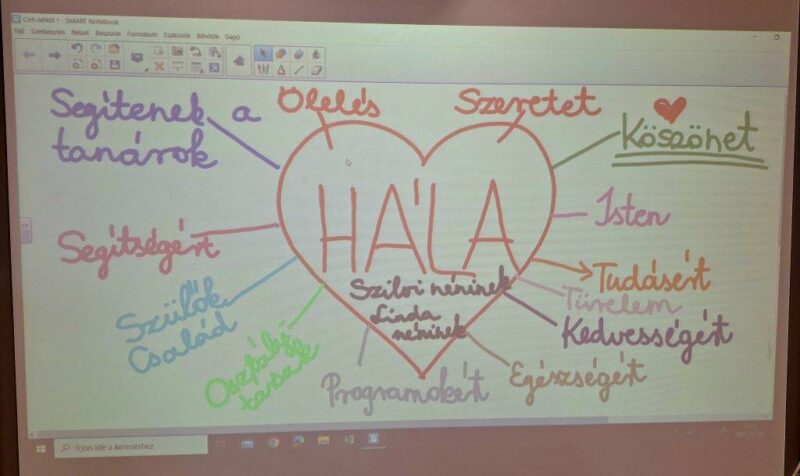 Cím nélkül * - SMART Notebook
Fájl Szerkesztés Nézet Beszúrás Formátum Eszközök Bővítők Súgó
Segítenek a
tanárok
Ölelés
Szeretet
Köszönet
HÁLA
Segítségért
Isten
Szülők
Család
Szilvi néninek
Linda
néninek
Tudásért
Türelem
Kedvességért
Osztály
társak
Programokért
Egészségért
Írjon ide a kereséshez